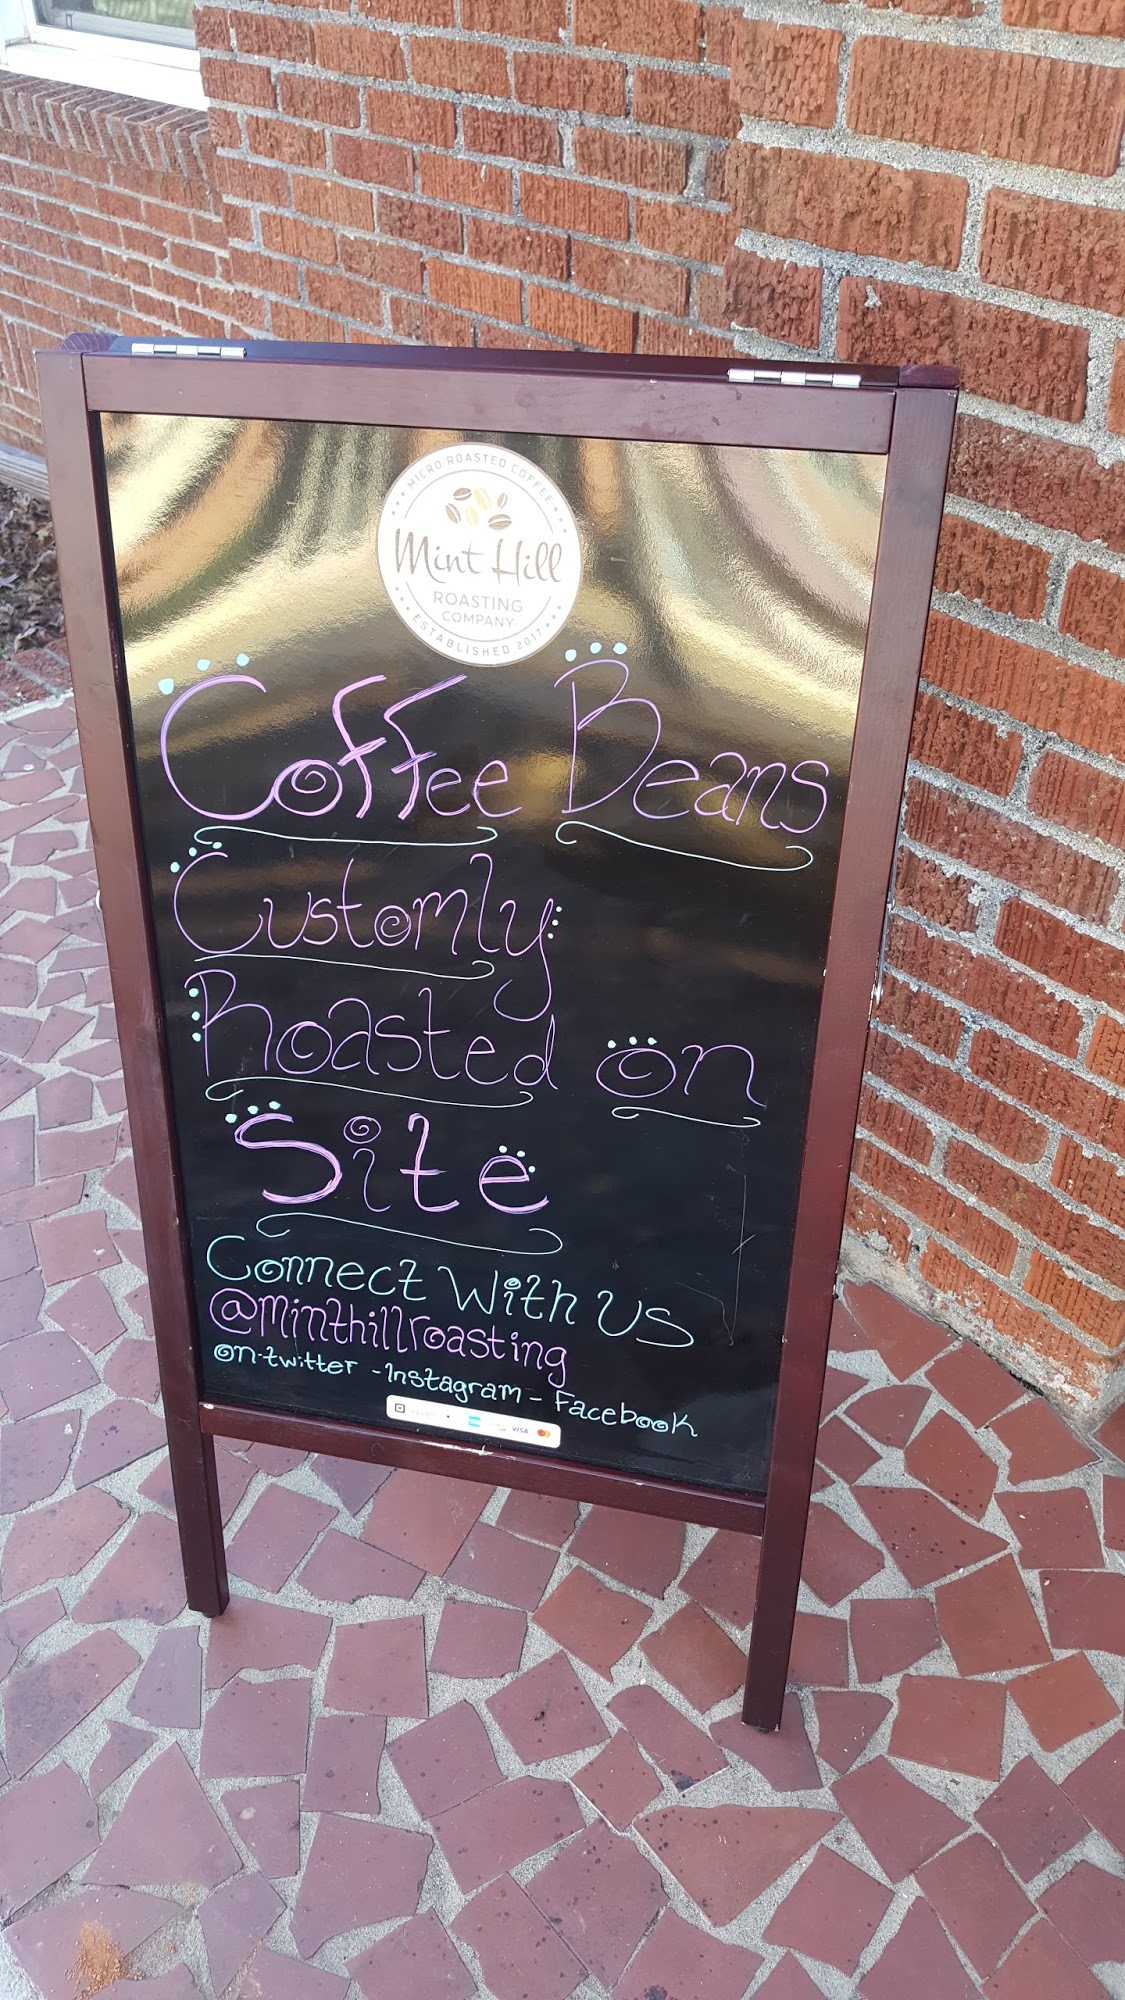 MICRO ROASTED COFFEE
Mint Hill
ROASTING
COMPANY
ESTABLISHED 2017
Coffee Beans
Customly
Roasted on
Site
Connect With Us
@minthillroasting
on-twitter - Instagram - Facebook
VISA